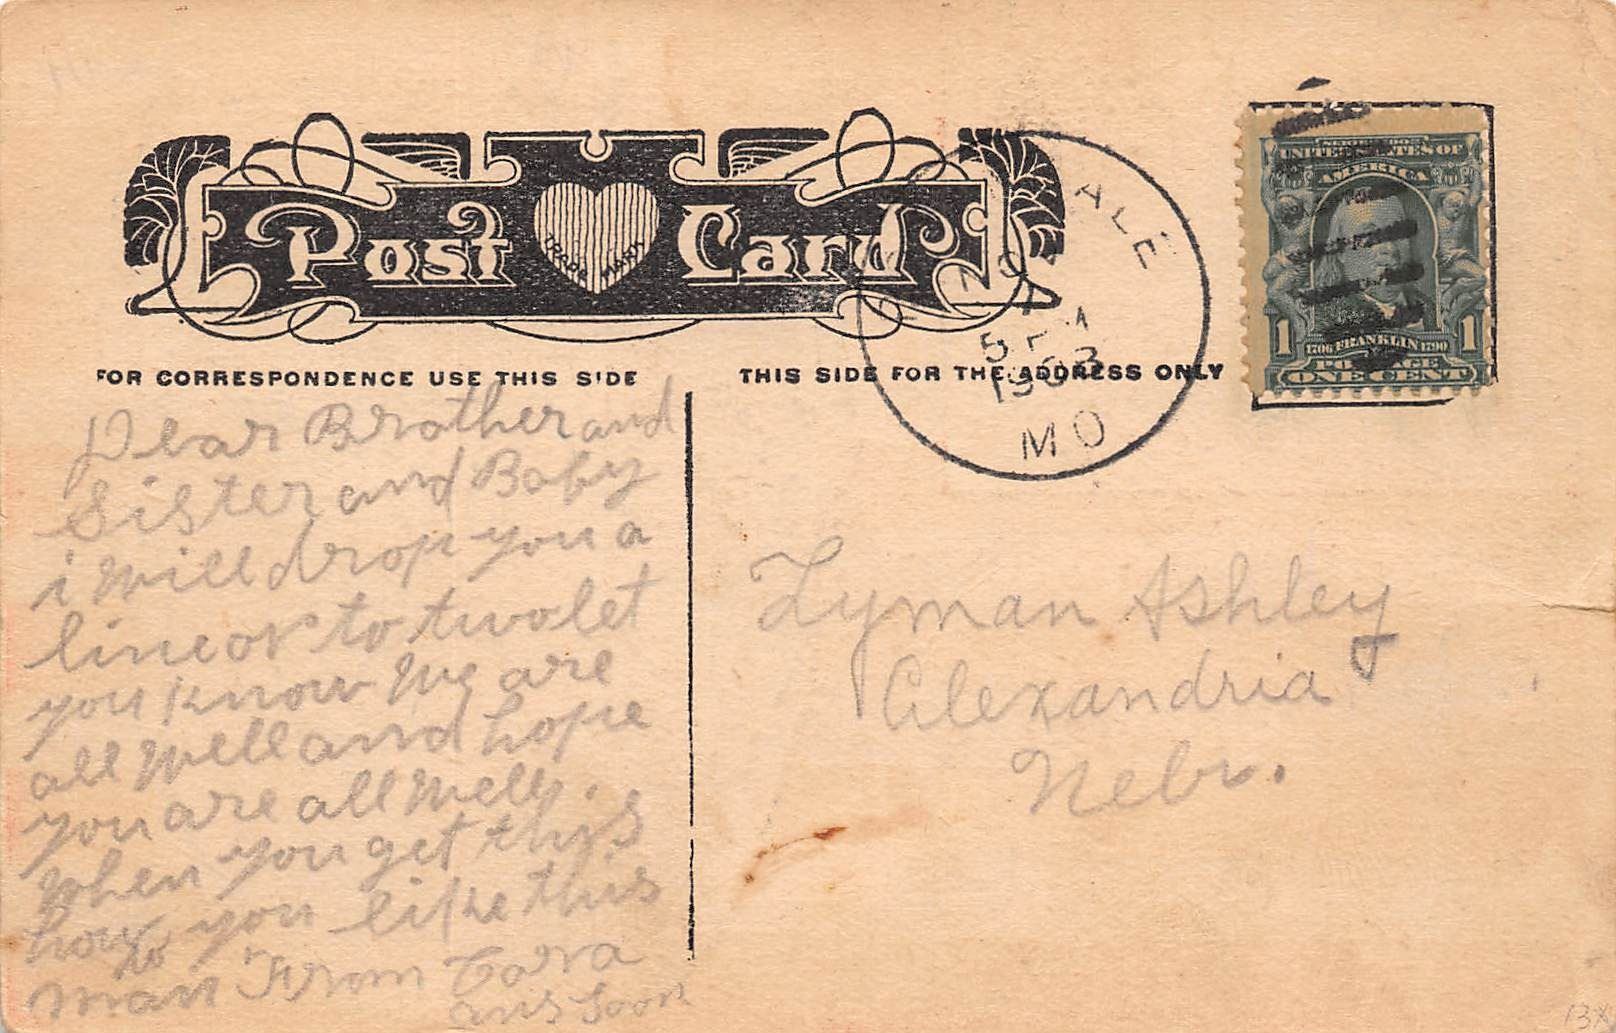 Post Card
TRADE MARK
FOR CORRESPONDENCE USE THIS SIDE
THIS SIDE FOR THE ADDRESS ONLY
ALE
5 PM
MO
UNITED STATES OF
AMERICA
1 1706 FRANKLIN 1790 1
POSTAGE
ONE CENT
Dear Brother and
Sister and Baby
i will drop you a
line or to two let
you know We are
all well and hope
you are all well.
When you get this
how do you like this
man From Cora
ans Soon
Lyman Ashley
Alexandria
Nebr.
13X